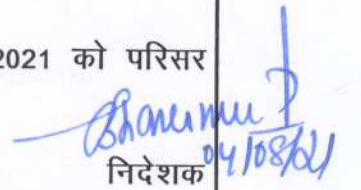 2021 को परिसर
04/08/21
निदेशक